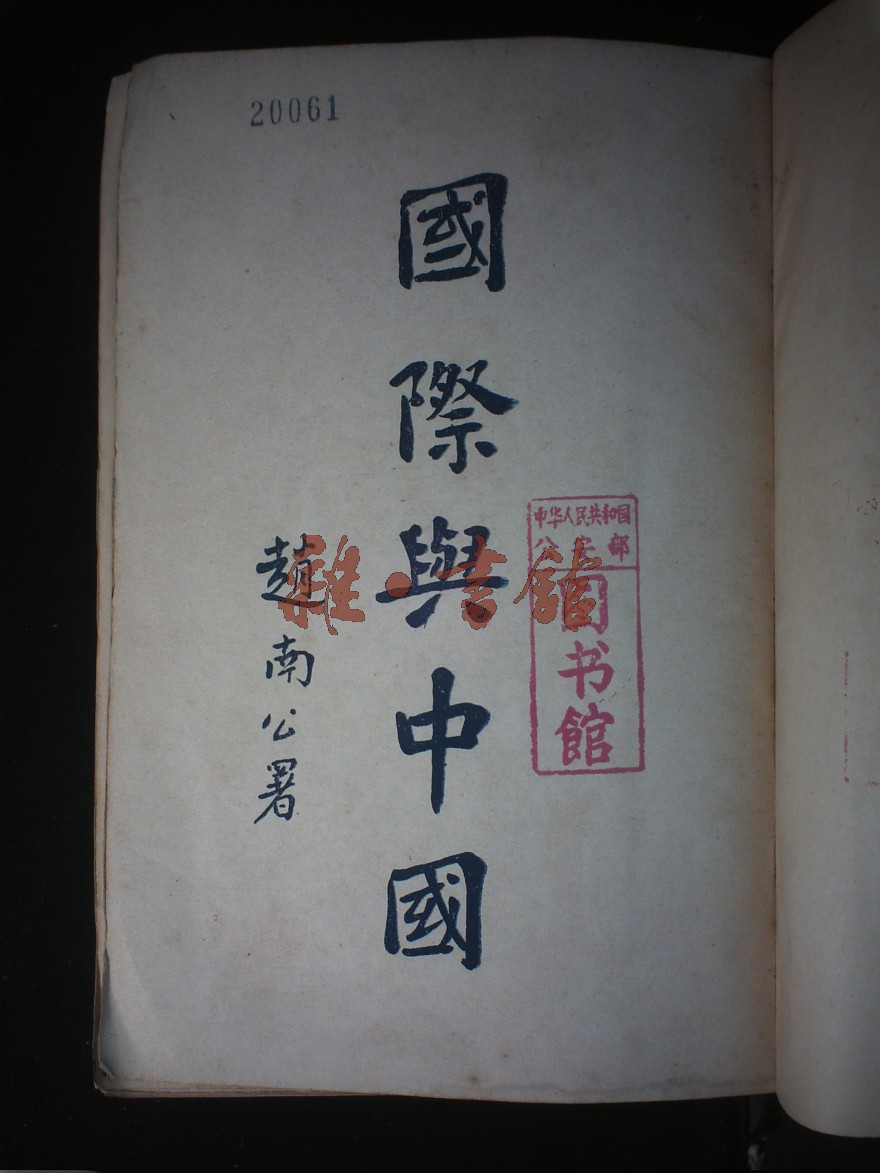 20061
國際與中國
趙南公署
中华人民共和国
公安部
图书馆
雜·書館